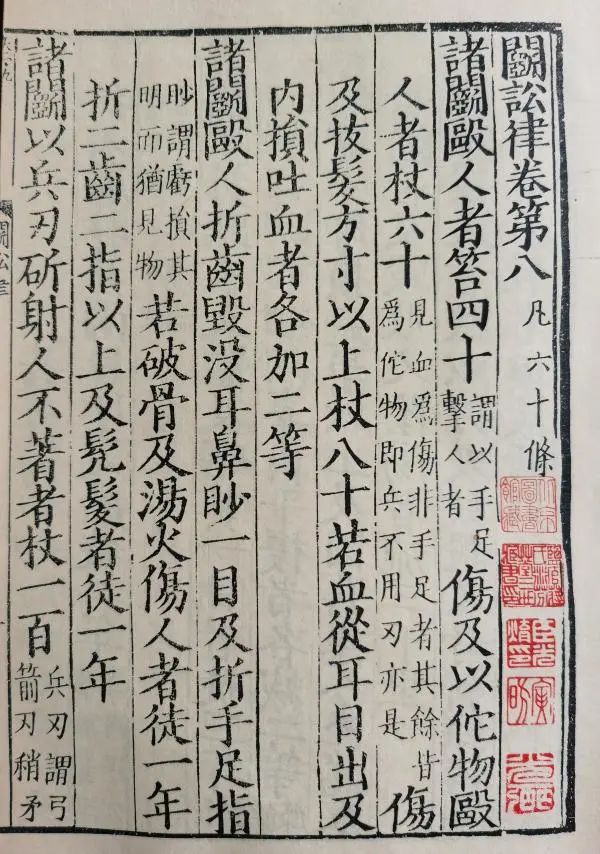 鬭訟律卷第八凡六十條
諸鬭毆人者笞四十謂以手足擊人者傷及以佗物毆
人者杖六十見血爲傷非手足者其餘皆爲佗物即兵不用刃亦是傷
及拔髮方寸以上杖八十若血從耳目出及
內損吐血者各加二等
諸鬭毆人折齒毀没耳鼻眇一目及折手足指
眇謂虧損其明而猶見物若破骨及湯火傷人者徒一年
折二齒二指以上及髡髮者徒一年
諸鬭以兵刃斫射人不著者杖一百兵刃謂弓箭刀稍矛
鬭訟律
北京圖書館藏
寅昉